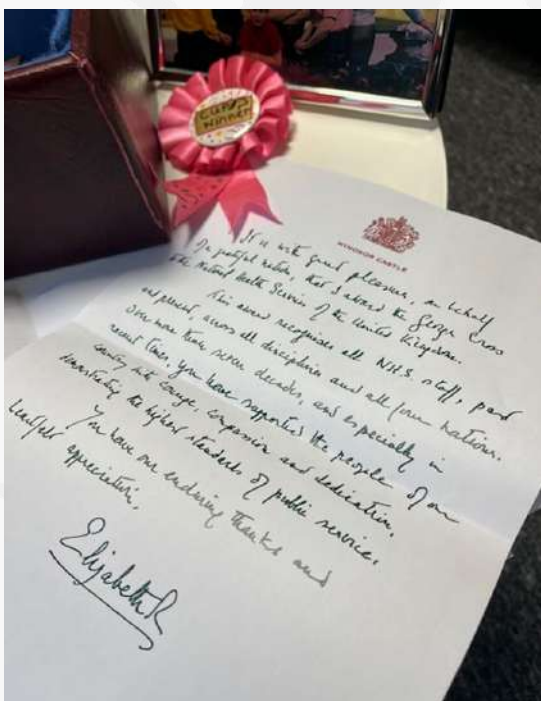 CUBS
WINNER
WINDSOR CASTLE
It is with great pleasure, on behalf
of a grateful nation, that I award the George Cross
to the National Health Services of the United Kingdom.
This award recognises all N.H.S. staff, past
and present, across all disciplines and all four nations.
Over more than seven decades, and especially in
recent times, you have supported the people of our
country with courage, compassion and dedication,
demonstrating the highest standards of public service.
You have our enduring thanks and
heartfelt appreciation.
Elizabeth R